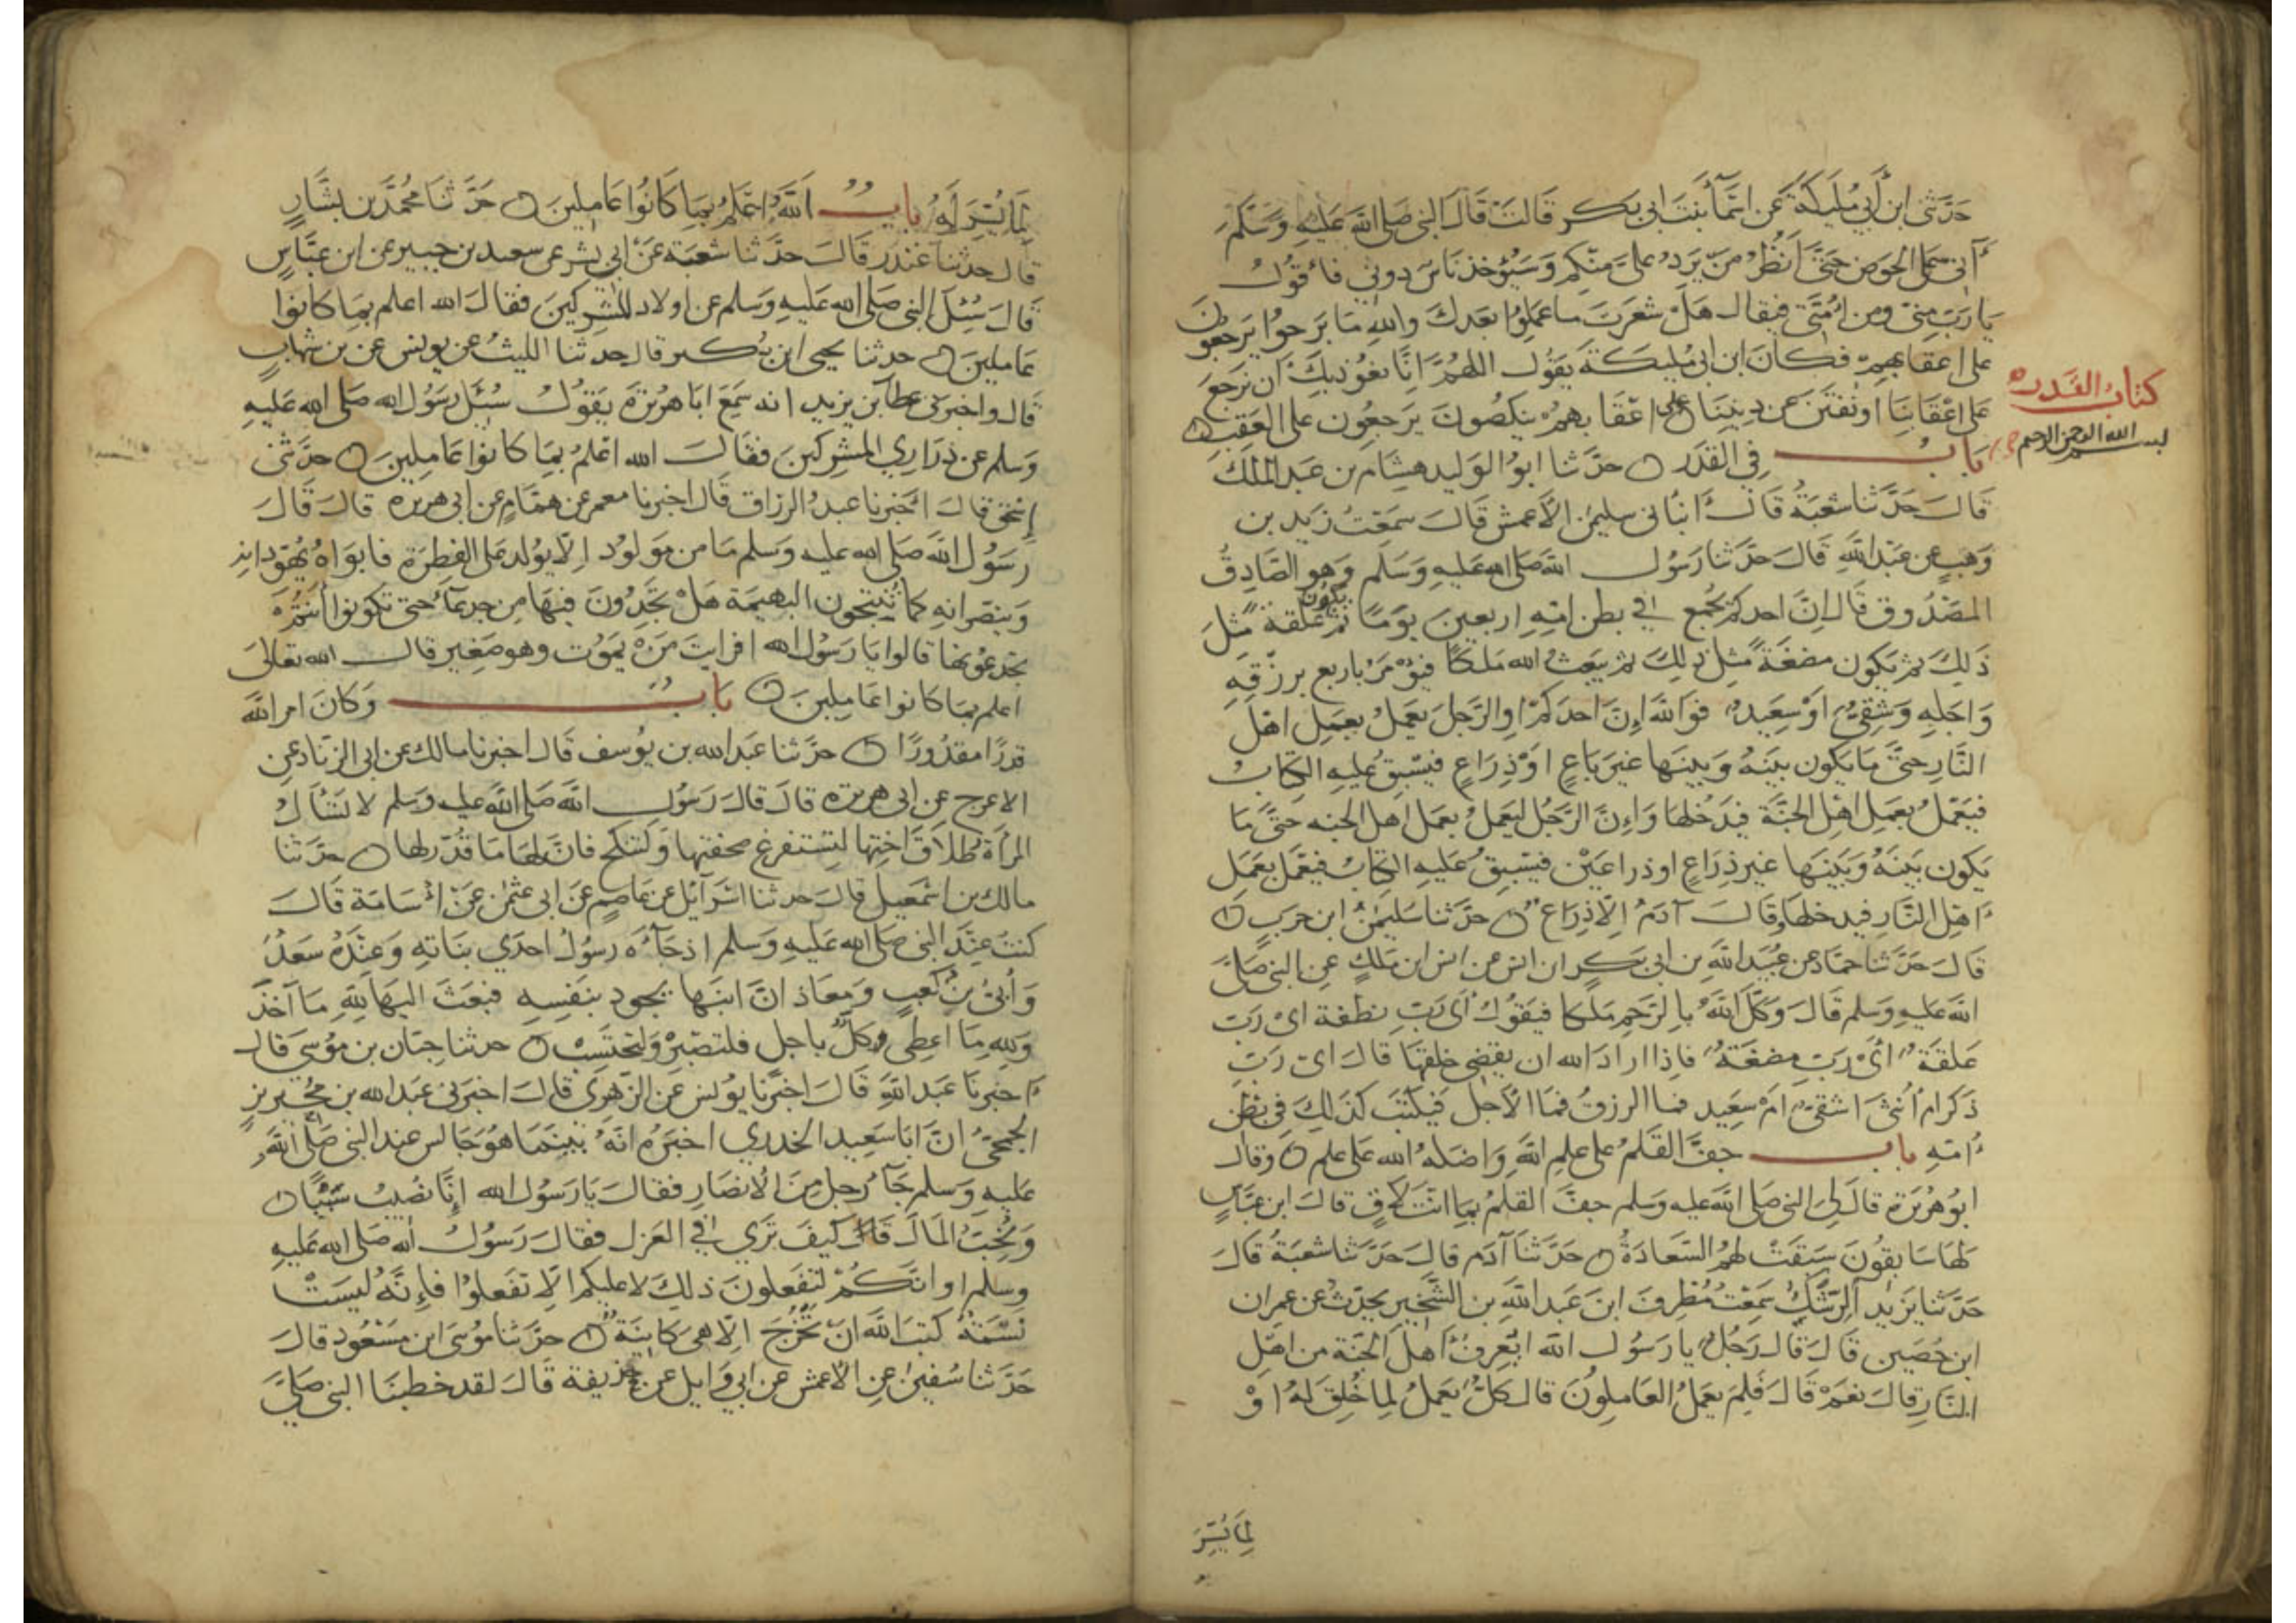 حدثنى ابن أبي مليكة عن اسمآء بنت ابى بكر قالت قال النبى صلى الله عليه وسلم
أنى على الحوض حتى انظر من يرد على منكم وسيؤخذ ناس دونى فأقول
يا رب منى ومن امتى فيقال هل شعرت ما عملوا بعدك والله ما برحوا يرجعون
على اعقابهم فكان ابن ابى مليكة يقول اللهم انا نعوذ بك ان نرجع
على اعقابنا او نفتن عن ديننا على اعقابهم ينكصون يرجعون على العقب
كتاب القدر
بسم الله الرحمن الرحيم
باب في القدر حدثنا ابو الوليد هشام بن عبد الملك
قال حدثنا شعبة قال أنبانى سليمن الأعمش قال سمعت زيد بن
وهب عن عبد الله قال حدثنا رسول الله صلى الله عليه وسلم وهو الصادق
المصدوق قال ان احدكم يجمع في بطن امه اربعين يوما ثم يكون علقة مثل
ذلك ثم يكون مضغة مثل ذلك ثم يبعث الله ملكا فيؤمر باربع برزقه
واجله وشقي او سعيد فوالله إن احدكم او الرجل يعمل بعمل اهل
النار حتى ما يكون بينه وبينها غير باع او ذراع فيسبق عليه الكتاب
فيعمل بعمل اهل الجنة فيدخلها وإن الرجل ليعمل بعمل اهل الجنه حتى ما
يكون بينه وبينها غير ذراع او ذراعين فيسبق عليه الكتاب فيعمل بعمل
اهل النار فيدخلها وقال آدم إلا ذراع حدثنا سليمن ابن حرب
قال حدثنا حماد عن عبيد الله بن ابى بكر ابن انس عن انس ابن ملك عن النبى صلى
الله عليه وسلم قال وكل الله بالرحم ملكا فيقول أى رب نطفة اى رب
علقة أى رب مضغة فاذا اراد الله ان يقضى خلقها قال اى رب
ذكر ام أنثى اشقى ام سعيد فما الرزق فما الأجل فيكتب كذلك في بطن
أمه باب جف القلم على علم الله واضله الله على علم وقال
ابو هريرة قال لى النبى صلى الله عليه وسلم جف القلم بما انت لاق قال ابن عباس
لها سابقون سبقت لهم السعادة حدثنا آدم قال حدثنا شعبة قال
حدثنا يزيد الرشك سمعت مطرف ابن عبد الله بن الشخير يحدث عن عمران
ابن حصين قال قال رجل يا رسول الله ايعرف أهل الجنة من اهل
النار قال نعم قال فلم يعمل العاملون قال كل يعمل لما خلق له او
لما يسر
لما يسر له باب الله اعلم بما كانوا عاملين حدثنا محمد بن بشار
قال حدثنا غندر قال حدثنا شعبة عن ابي بشر عن سعيد بن جبير عن ابن عباس
قال سئل النبى صلى الله عليه وسلم عن اولاد المشركين فقال الله اعلم بما كانوا
عاملين حدثنا يحيى ابن بكير قال حدثنا الليث عن يونس عن بن شهاب
قال واخبرنى عطآ بن يزيد انه سمع ابا هريرة يقول سئل رسول الله صلى الله عليه
وسلم عن ذراري المشركين فقال الله اعلم بما كانوا عاملين حدثنى
إسحق قال أخبرنا عبد الرزاق قال اخبرنا معمر عن همام عن ابى هريره قال قال
رسول الله صلى الله عليه وسلم ما من مولود الا يولد على الفطرة فابواه يهودانه
وينصرانه كما تنتجون البهيمة هل تجدون فيها من جدعآء حتى تكونوا أنتم
تجدعونها قالوا يا رسول الله افرايت من يموت وهو صغير قال الله تعالى
اعلم بما كانوا عاملين باب وكان امر الله
قدرا مقدورا حدثنا عبد الله بن يوسف قال اخبرنا مالك عن ابى الزناد عن
الاعرج عن ابى هريرة قال قال رسول الله صلى الله عليه وسلم لا تسأل
المرأة طلاق اختها لتستفرغ صحفتها ولتنكح فان لها ما قدر لها حدثنا
مالك بن اسمعيل قال حدثنا اسرآئل عن عاصم عن ابى عثمن عن أسامة قال
كنت عند النبى صلى الله عليه وسلم اذ جآءه رسول احدي بناته وعنده سعد
وأبى بن كعب ومعاذ ان ابنها يجود بنفسه فبعث اليها لله ما آخذ
ولله ما اعطى وكل باجل فلتصبر ولتحتسب حدثنا حبان بن موسى قال
أخبرنا عبد الله قال اخبرنا يونس عن الزهري قال اخبرنى عبد الله بن محيريز
الجمحي ان ابا سعيد الخدري اخبره انه بينما هو جالس عند النبى صلى الله
عليه وسلم جآء رجل من الأنصار فقال يا رسول الله إنا نصيب سبيا
ونحب المال قال كيف تري في العزل فقال رسول الله صلى الله عليه
وسلم او انكم لتفعلون ذلك لا عليكم الا تفعلوا فإنه ليست
نسمة كتب الله ان تخرج الا هى كاينة حدثنا موسى ابن مسعود قال
حدثنا سفين عن الأعمش عن ابي وايل عن حذيفة قال لقد خطبنا النبى صلى